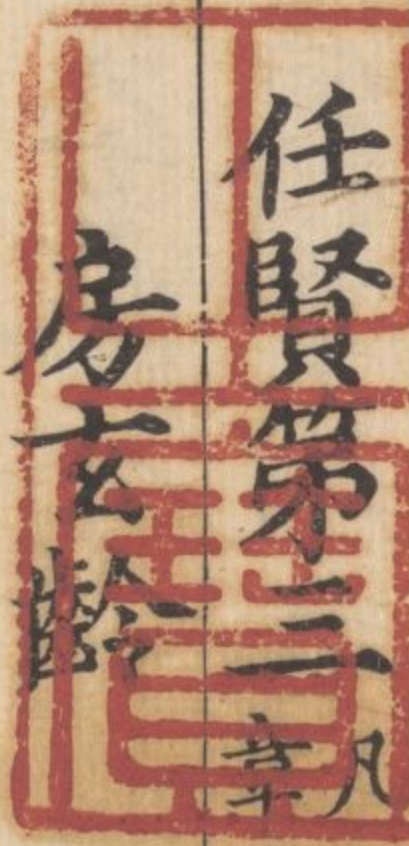 任賢第三凡章
房玄齡